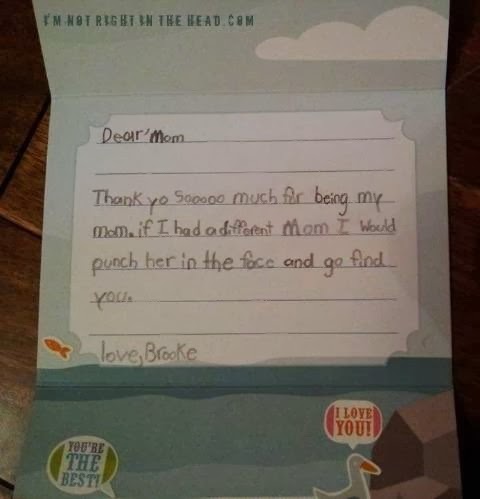 I'M NOT RIGHT IN THE HEAD.COM
Dear'Mom
Thank yo Sooooo much for being my
mom. if I had a different Mom I Would
punch her in the face and go find
you.
love, Brooke
I LOVE
YOU!
YOU'RE
THE
BEST!